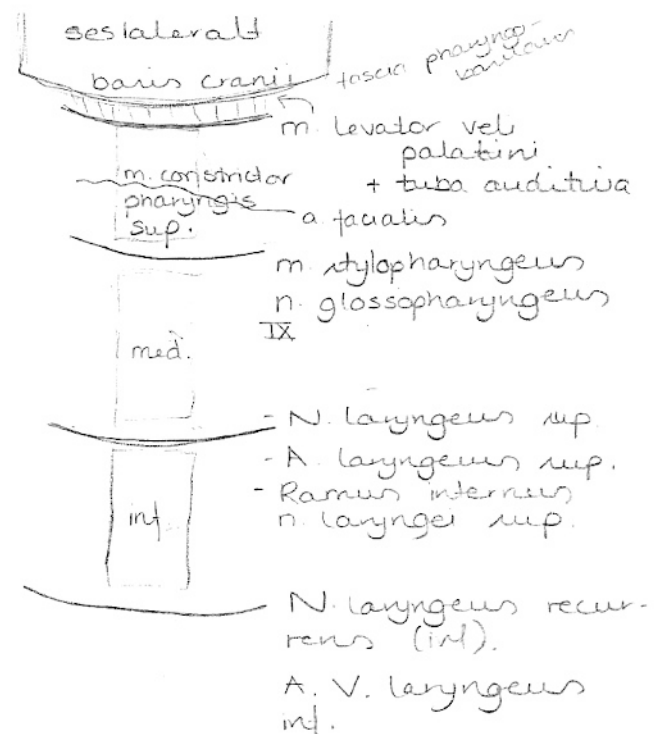 ses lateralt
basis cranii
fascia pharyngo-
basilaris
m. levator veli
palatini
+ tuba auditiva
m. constrictor
pharyngis
sup.
a. facialis
m. stylopharyngeus
n. glossopharyngeus
IX
med.
- N. laryngeus sup.
- A. laryngeus sup.
- Ramus internus
n. laryngei sup.
inf.
N. laryngeus recur-
rens (inf).
A. V. laryngeus
inf.